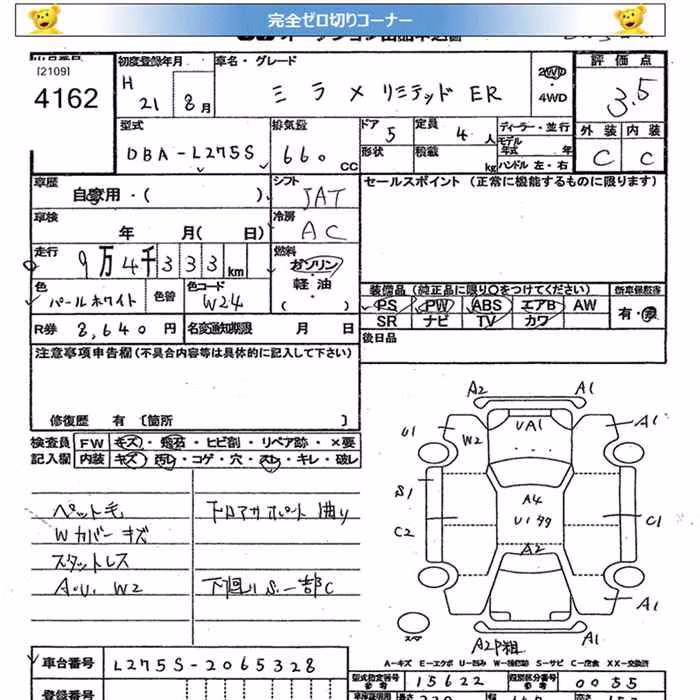 完全ゼロ切りコーナー
[2109]
4162
初度登録年月
H 21 8月
車名・グレード
ミラ メリミテッド ER
2WD・4WD
評価点
3.5
外装 内装
C C
型式
DBA-L275S
排気量
660 CC
ドア 5
形状
定員 4人
積載 kg
ディーラー・並行
モデル年式 年
ハンドル 左・右
車歴
自家用・( )
シフト
IAT
車検
年 月( 日)
冷房
AC
走行
9万4千333km
燃料
ガソリン・軽油・( )
色
パールホワイト
色替
色コード
W24
R券 8,640円
名変通知期限 月 日
セールスポイント (正常に機能するものに限ります)
装備品(純正品に限り○をつけてください)
PS PW ABS エアB AW
SR ナビ TV カワ
新車保証書
有・無
後日品
注意事項申告欄(不具合内容等は具体的に記入して下さい)
修復歴 有 [箇所 ]
検査員記入欄
FW キズ・飛石・ヒビ割・リペア跡・×要
内装 キズ・汚レ・コゲ・穴・スレ・キレ・破レ
ペット毛
Wカバーキズ
スタットレス
A.U. W2
下回りS.一部C
A2 A1
U1 W2 UA1 A1
S1 A4 U1
C2 C1
A2
A1
スペア
A2P粗 A1
A-キズ E-エクボ U-凹み W-補修跡 S-サビ C-腐食 XX-交換済
車台番号 L275S-2065328
登録番号
型式指定番号 参考 15622
類別区分番号 参考 0035